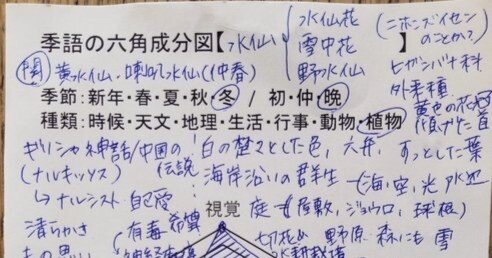 季語の六角成分図【水仙 水仙花 雪中花 野水仙 】
(ニホンズイセンのことか?)
関 黄水仙・喇叭水仙(仲春)
ヒガンバナ科
外来種
季節:新年・春・夏・秋・冬 / 初・仲・晩
種類:時候・天文・地理・生活・行事・動物・植物
ギリシャ神話/中国の伝説
白の整々とした色、六弁、すっとした葉
(ナルキッソス)
海岸沿いの群生 海、空、光
↳ナルシスト 自己愛
視覚 庭(屋敷、ジョウロ、球根)
清らかさ
有毒
切花 野原 森にも 雪
水耕栽培